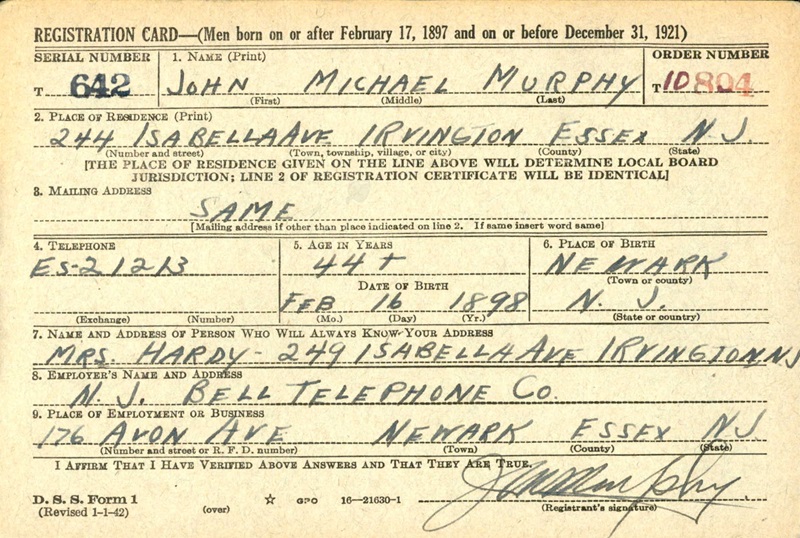 REGISTRATION CARD—(Men born on or after February 17, 1897 and on or before December 31, 1921)
SERIAL NUMBER 1. NAME (Print) ORDER NUMBER
T 642 JOHN MICHAEL MURPHY T 10804
(First) (Middle) (Last)
2. PLACE OF RESIDENCE (Print)
244 ISABELLA AVE IRVINGTON ESSEX N.J.
(Number and street) (Town, township, village, or city) (County) (State)
[THE PLACE OF RESIDENCE GIVEN ON THE LINE ABOVE WILL DETERMINE LOCAL BOARD
JURISDICTION; LINE 2 OF REGISTRATION CERTIFICATE WILL BE IDENTICAL]
3. MAILING ADDRESS
SAME
[Mailing address if other than place indicated on line 2. If same insert word same]
4. TELEPHONE 5. AGE IN YEARS 6. PLACE OF BIRTH
ES-2 1213 44 + NEWARK
(Town or county)
DATE OF BIRTH
FEB 16 1898 N. J.
(Exchange) (Number) (Mo.) (Day) (Yr.) (State or country)
7. NAME AND ADDRESS OF PERSON WHO WILL ALWAYS KNOW YOUR ADDRESS
MRS. HARDY - 249 ISABELLA AVE IRVINGTON NJ
8. EMPLOYER'S NAME AND ADDRESS
N. J. BELL TELEPHONE CO.
9. PLACE OF EMPLOYMENT OR BUSINESS
176 AVON AVE NEWARK ESSEX NJ
(Number and street or R. F. D. number) (Town) (County) (State)
I AFFIRM THAT I HAVE VERIFIED ABOVE ANSWERS AND THAT THEY ARE TRUE.
D. S. S. Form 1 ☆ GPO 16—21630-1 John M Murphy
(Revised 1-1-42) (over) (Registrant's signature)